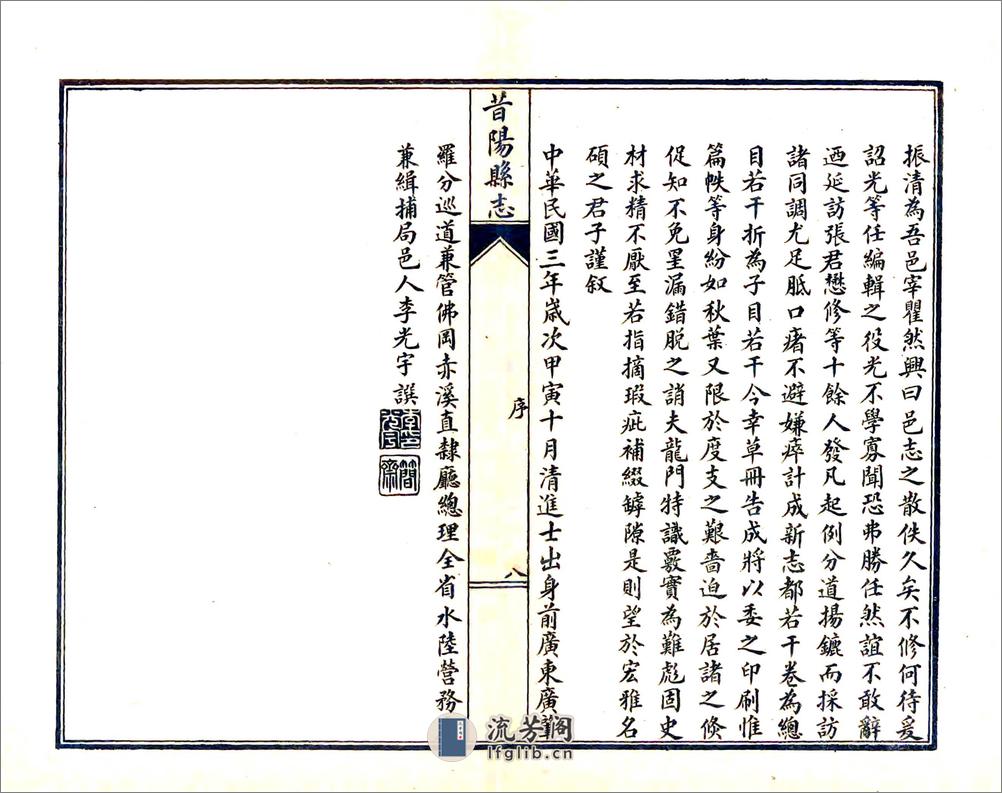 振清為吾邑宰瞿然興曰邑志之散佚久矣不修何待爰
詔光等任編輯之役光不學寡聞恐弗勝任然誼不敢辭
迺延訪張君懋修等十餘人發凡起例分道揚鑣而採訪
諸同調尤足胝口瘏不避嫌瘁計成新志都若干卷為總
目若干折為子目若干今幸草冊告成將以委之印刷惟
篇帙等身紛如秋葉又限於度支之艱嗇迫於居諸之倏
促知不免罣漏錯脫之誚夫龍門特識覈實為難彪固史
材求精不厭至若指摘瑕疵補綴罅隙是則望於宏雅名
碩之君子謹叙
中華民國三年歲次甲寅十月清進士出身前廣東廣肇
昔陽縣志
序
八
羅分巡道兼管佛岡赤溪直隸廳總理全省水陸營務
兼緝捕局邑人李光宇譔
流芳阁
lfglib.cn